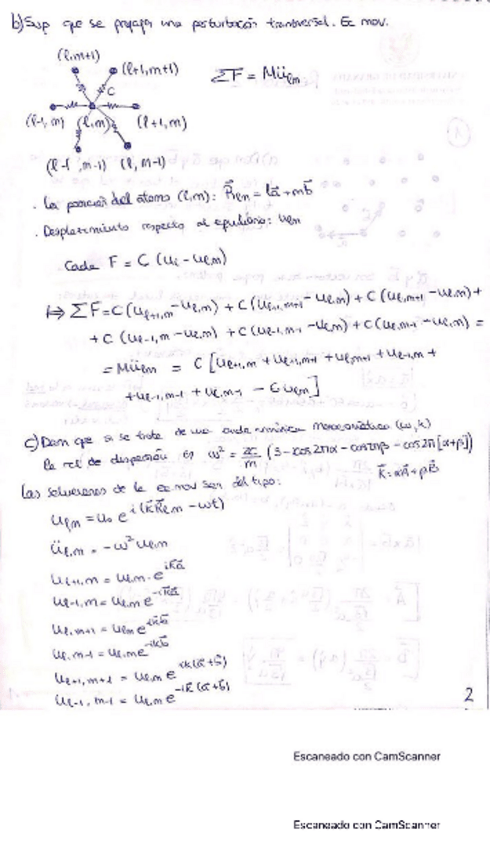 b) Sup que se propaga una perturbación transversal. Ec mov.
(l,m+1)
(l+1,m+1)
ΣF = Mü_lm
C
(l-1,m) (l,m) (l+1,m)
(l-1,m-1) (l,m-1)
· La posición del átomo (l,m): R⃗_lm = la⃗ + mb⃗
· Desplazamiento respecto al equilibrio: u_lm
Cada F = C (u_i - u_l,m)
↦ ΣF = C(u_l+1,m - u_l,m) + C(u_l+1,m+1 - u_l,m) + C(u_l,m+1 - u_l,m) +
+ C (u_l-1,m - u_l,m) + C(u_l-1,m-1 - u_l,m) + C(u_l,m-1 - u_l,m) =
= Mü_lm = C [u_l+1,m + u_l+1,m+1 + u_l,m+1 + u_l-1,m +
+ u_l-1,m-1 + u_l,m-1 - 6u_l,m]
c) Dem que si se trata de una onda armónica monocromática (ω,k)
la rel de dispersión es ω² = 2C/m (3 - cos2πα - cos2πβ - cos2π[α+β])
K⃗ = αA⃗ + βB⃗
Las soluciones de la ec mov son del tipo:
u_l,m = u₀ e^i(k⃗R⃗_l,m - ωt)
ü_l,m = -ω² u_l,m
u_l+1,m = u_l,m · e^ik⃗a⃗
u_l-1,m = u_l,m e^-ik⃗a⃗
u_l,m+1 = u_l,m e^ik⃗b⃗
u_l,m-1 = u_l,m e^-ik⃗b⃗
u_l+1,m+1 = u_l,m e^ik⃗(a⃗+b⃗)
u_l-1,m-1 = u_l,m e^-ik⃗(a⃗+b⃗)
2
Escaneado con CamScanner
Escaneado con CamScanner